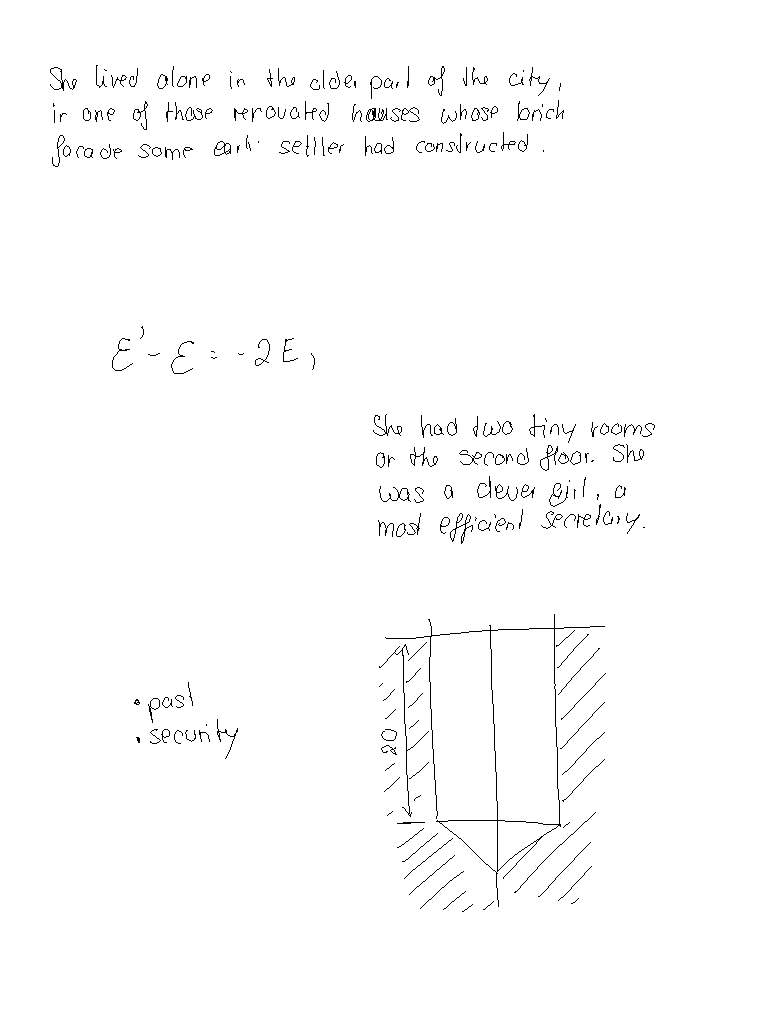 She lived alone in the older part of the city,
in one of those renovated houses whose brick
facade some early settler had constructed.
ℰ' - ℰ = -2E,
She had two tiny rooms
on the second floor. She
was a clever girl, a
most efficient secretary.
• past
• security
20